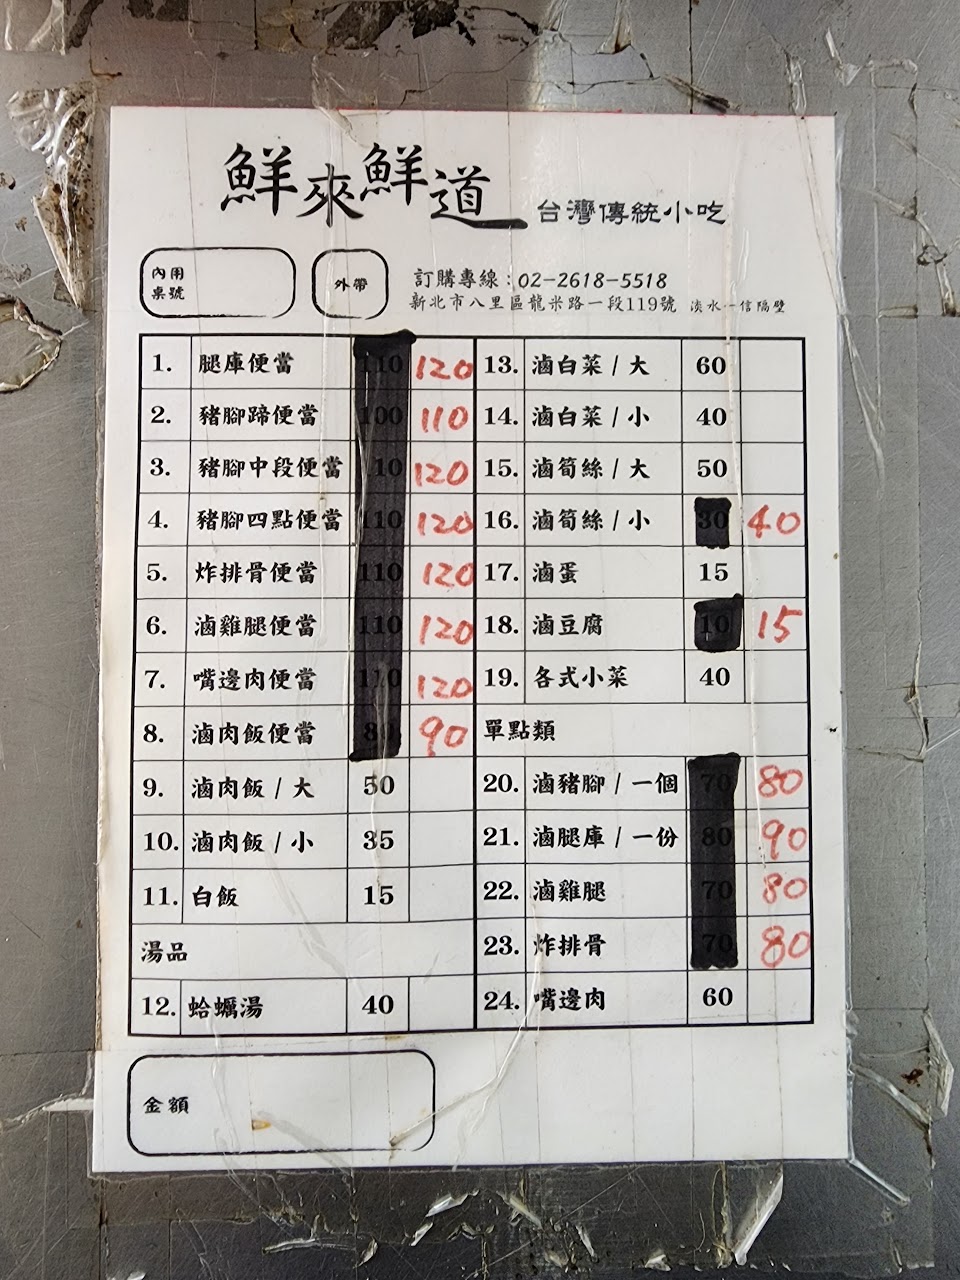 鮮來鮮道 台灣傳統小吃
內用
桌號
外帶
訂購專線：02-2618-5518
新北市八里區龍米路一段119號 淡水一信隔壁
1. 腿庫便當 110 120
2. 豬腳蹄便當 100 110
3. 豬腳中段便當 110 120
4. 豬腳四點便當 110 120
5. 炸排骨便當 110 120
6. 滷雞腿便當 110 120
7. 嘴邊肉便當 110 120
8. 滷肉飯便當 80 90
9. 滷肉飯 / 大 50
10. 滷肉飯 / 小 35
11. 白飯 15
湯品
12. 蛤蠣湯 40
13. 滷白菜 / 大 60
14. 滷白菜 / 小 40
15. 滷筍絲 / 大 50
16. 滷筍絲 / 小 30 40
17. 滷蛋 15
18. 滷豆腐 10 15
19. 各式小菜 40
單點類
20. 滷豬腳 / 一個 70 80
21. 滷腿庫 / 一份 80 90
22. 滷雞腿 70 80
23. 炸排骨 70 80
24. 嘴邊肉 60
金額